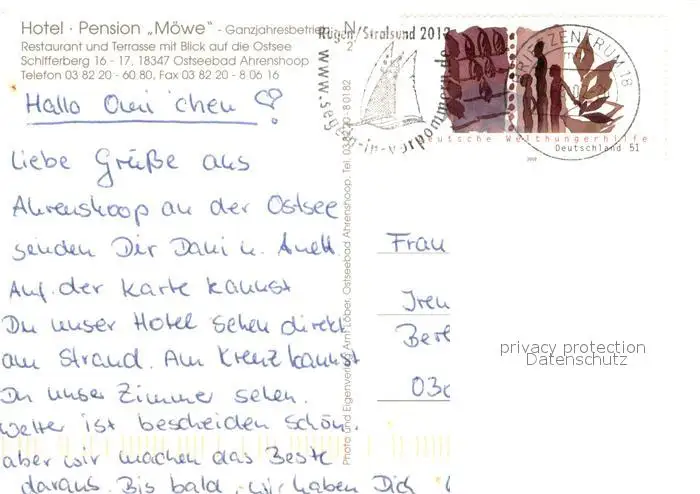 Hotel · Pension „Möwe" - Ganzjahresbetrieb
Restaurant und Terrasse mit Blick auf die Ostsee
Schifferberg 16 - 17, 18347 Ostseebad Ahrenshoop
Telefon 03 82 20 - 60 80, Fax 03 82 20 - 8 06 16
Hallo Omi'chen
Liebe Grüße aus
Ahrenshoop an der Ostsee
senden Dir Dani u. Anett.
Auf der Karte kannst
Du unser Hotel sehen direkt
am Strand. Am Kreuz kannst
Du unser Zimmer sehen.
Wetter ist bescheiden schön.
aber wir machen das Beste
daraus. Bis bald, wir haben Dich
Photo und Eigenverlag Arni Löber, Ostseebad Ahrenshoop, Tel. 03 82 20 - 8 01 82
Rügen/Stralsund
www.segeln-in-vorpommern.de
BRIEFZENTRUM 18
Deutsche Welthungerhilfe
Deutschland 51
Frau
Iren
Berl
privacy protection
Datenschutz